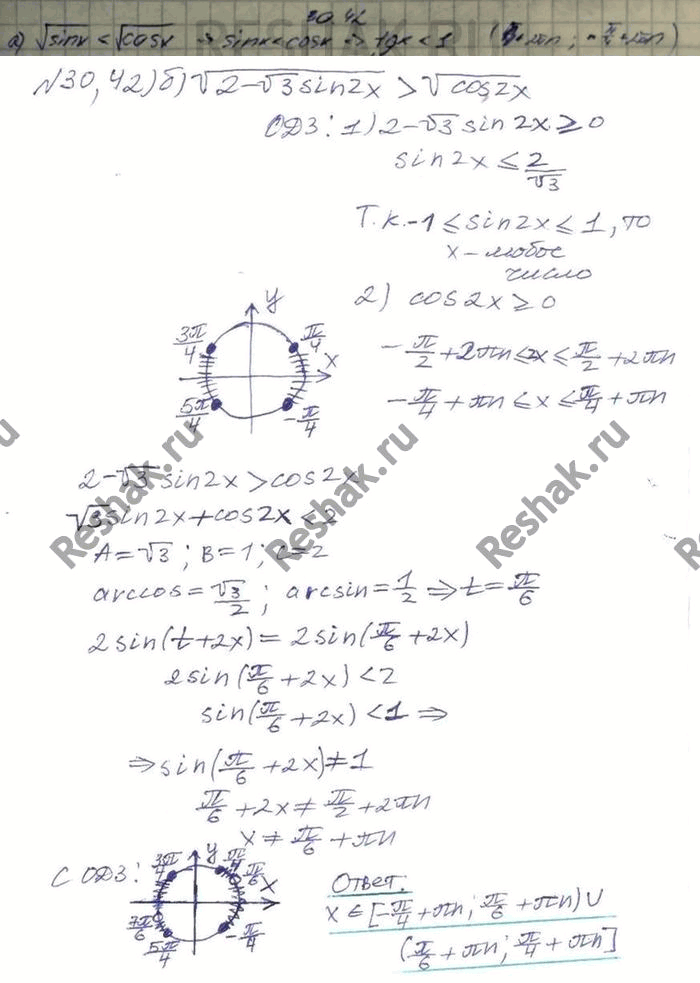 30.42
а) √sinx < √cosx → sinx < cosx → tgx < 1
N30,42) б) √(2-√3 sin2x) > √cos2x
ОДЗ: 1) 2-√3 sin 2x ≥ 0
sin2x ≤ 2/√3
Т.к. -1 ≤ sin2x ≤ 1, то
x - любое
число
2) cos2x ≥ 0
y
3π/4 π/4 x
-π/2 + 2πn ≤ 2x ≤ π/2 + 2πn
5π/4 -π/4
-π/4 + πn ≤ x ≤ π/4 + πn
2-√3 sin2x > cos2x
√3 sin2x + cos2x < 2
A = √3; B = 1; C = 2
arccos = √3/2; arcsin = 1/2 ⇒ t = π/6
2sin(t+2x) = 2sin(π/6 + 2x)
2sin(π/6 + 2x) < 2
sin(π/6 + 2x) < 1 ⇒
⇒ sin(π/6 + 2x) ≠ 1
π/6 + 2x ≠ π/2 + 2πn
x ≠ π/6 + πn
С ОДЗ:
3π/4 y π/4 π/6 x
7π/6 5π/4 -π/4
Ответ.
x ∈ [-π/4 + πn; π/6 + πn) ∪
(π/6 + πn; π/4 + πn]
Reshak.ru
Reshak.ru
Reshak.ru